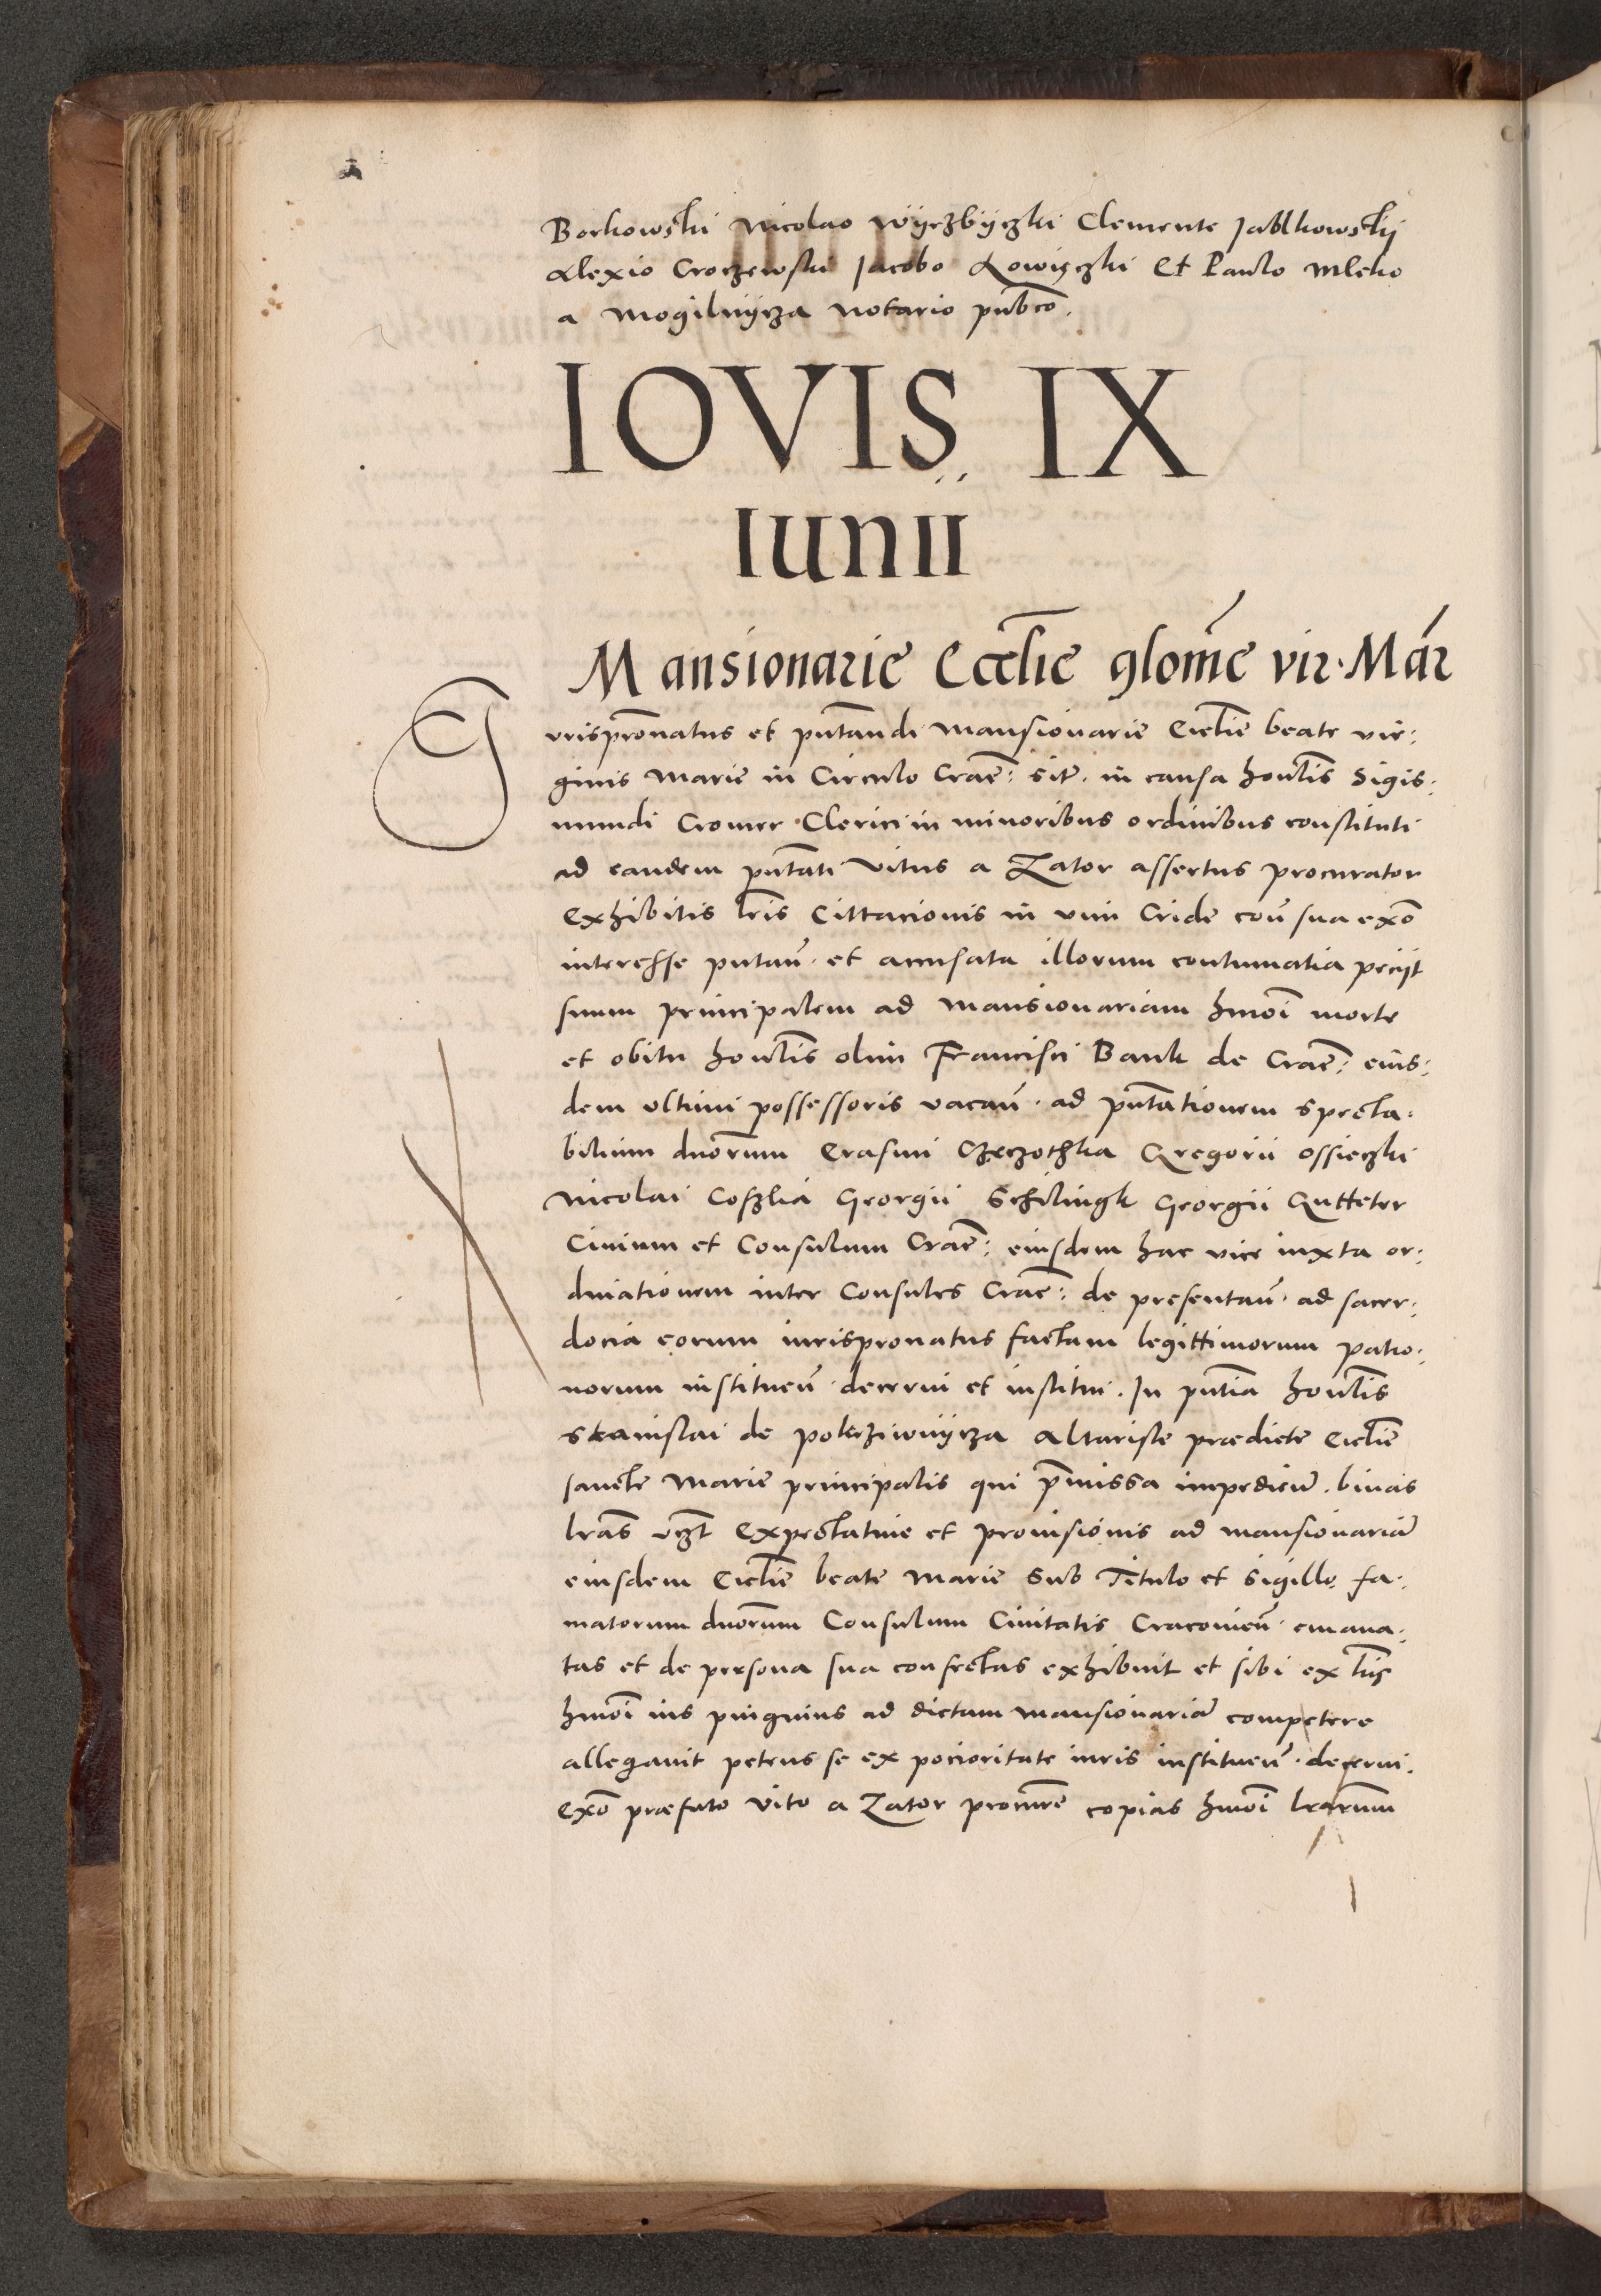 Borkowski Nicolao Wyrzbyczki Clemente Jablkowskij
Alexio Croczewski Jacobo Lowyczki Et Paulo Mleko
a Mogilnÿcza notario pub͞co.
IOVIS IX
Iunii
Mansionarie Eccl͞ie glom͞e vir. Mar͞
Jurispro͞natus et pn͞tandi mansionarie Eccl͞ie beate vir:
ginis Marie in Circulo Crac͞: site. in causa hon͞lis Sigis:
mundi Cromer Clerici in minoribus ordinibus constituti
ad eandem pn͞tati Vitus a Zator assertus procurator
Exhibitis lr͞is Cittacionis in vim Cride con͞ sua exo͞
interesse putan͞. et accusata illorum contumatia peciit
suum principalem ad mansionariam hmo͞i morte
et obitu hon͞lis olim Francisci Bank de Crac͞: eius:
dem ultimi possessoris vacan͞. ad pn͞tationem specta:
bilium dno͞rum Erasmi Czeczothka Gregorii Ossieczki
Nicolai Coszlia Georgii Schilingk Georgii Gutteter
Civium et Consulum Crac͞: eiusdem hac vice iuxta or:
dinationem inter Consules Crac͞: de presentan͞. ad sacer:
docia eorum iurispronatus factam legittimorum patro:
norum instituen͞. decerni et institui. In pn͞tia hon͞lis
Stanislai de Polerziwnÿcza Altariste prædicte Eccl͞ie
sancte Marie principalis qui pr͞missa impedien͞. binas
lr͞as vz͞t Expectative et provisionis ad mansionaria͞
eiusdem Eccl͞ie beate Marie Sub Titulo et Sigillo fa:
matorum dno͞rum Consulum Civitatis Cracovien͞. emana:
tas et de persona sua confectas exhibuit et sibi ex lr͞is
hmo͞i ius pinguius ad dictam mansionaria͞ competere
allegavit petens se ex pocioritate iuris instituen͞. decerni.
Exo͞ præfato Vito a Zator procur͞e copias hmo͞i lr͞arum